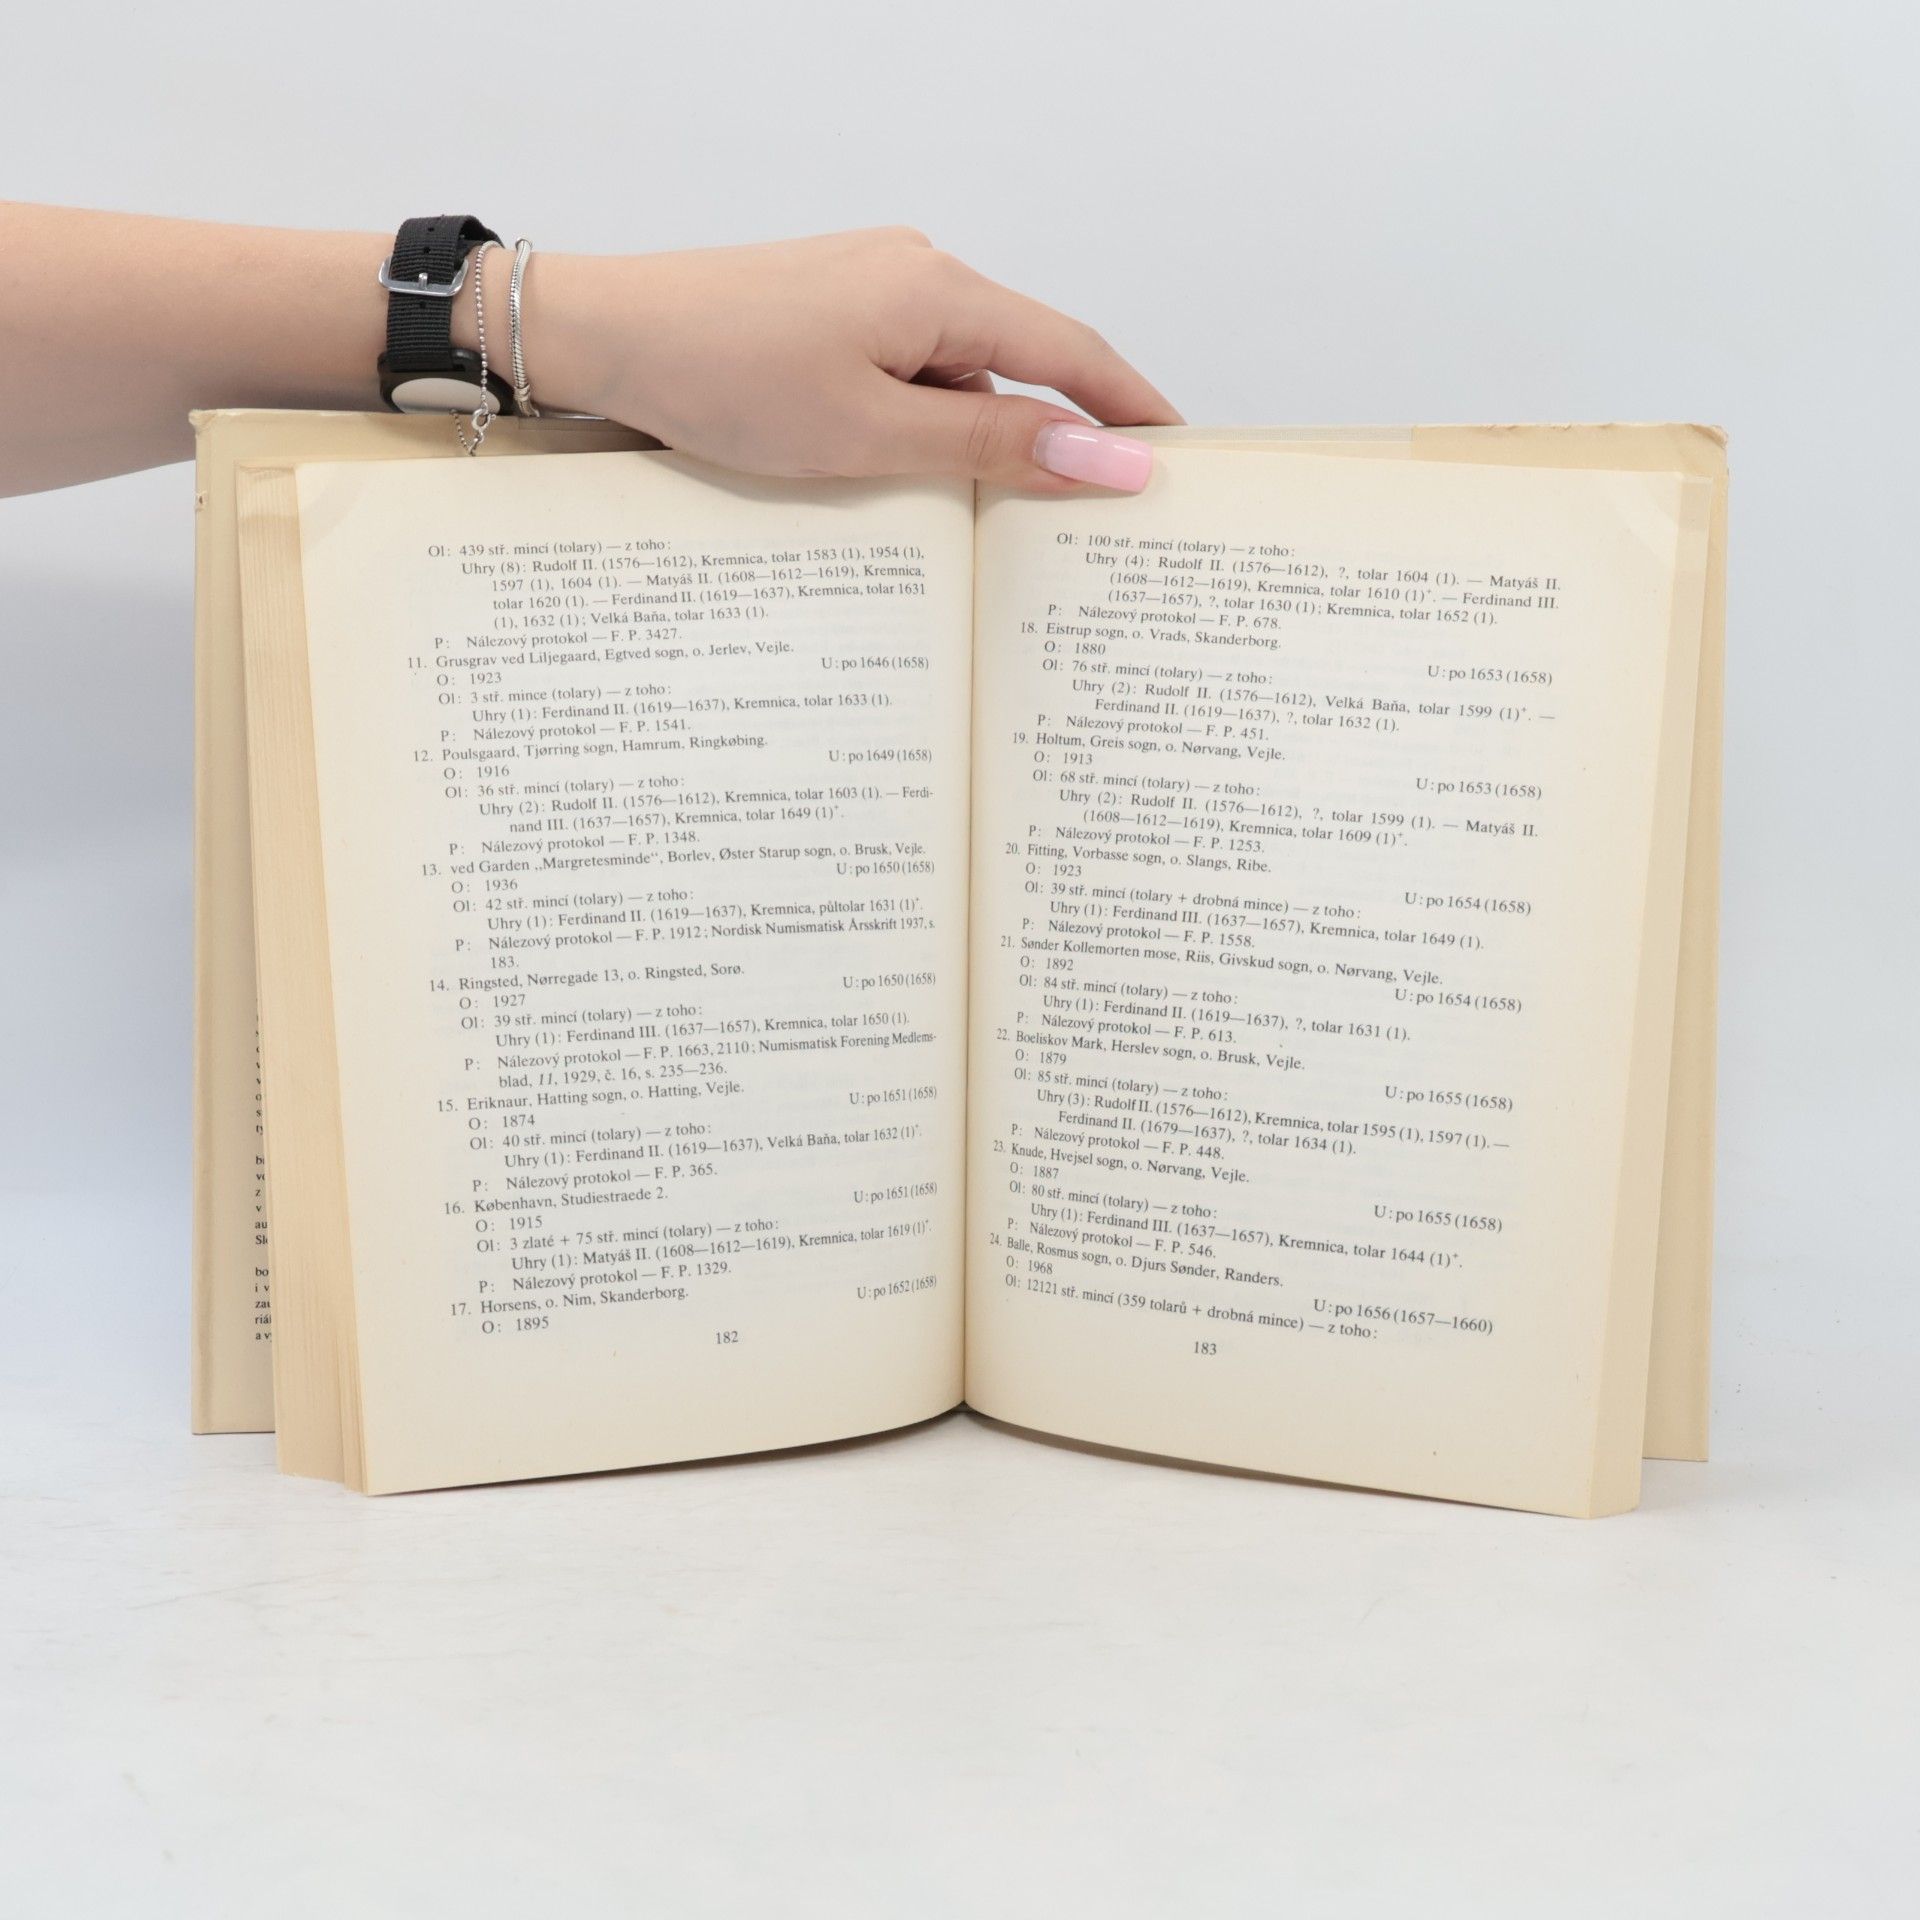 Ol: 439 stř. mincí (tolary) — z toho:
Uhry (8): Rudolf II. (1576—1612), Kremnica, tolar 1583 (1), 1954 (1),
1597 (1), 1604 (1). — Matyáš II. (1608—1612—1619), Kremnica,
tolar 1620 (1). — Ferdinand II. (1619—1637), Kremnica, tolar 1631
(1), 1632 (1); Velká Baňa, tolar 1633 (1).
P: Nálezový protokol — F. P. 3427.
11. Grusgrav ved Liljegaard, Egtved sogn, o. Jerlev, Vejle.
O: 1923 U: po 1646 (1658)
Ol: 3 stř. mince (tolary) — z toho:
Uhry (1): Ferdinand II. (1619—1637), Kremnica, tolar 1633 (1).
P: Nálezový protokol — F. P. 1541.
12. Poulsgaard, Tjørring sogn, Hamrum, Ringkøbing.
O: 1916 U: po 1649 (1658)
Ol: 36 stř. mincí (tolary) — z toho:
Uhry (2): Rudolf II. (1576—1612), Kremnica, tolar 1603 (1). — Ferdi-
nand III. (1637—1657), Kremnica, tolar 1649 (1)+.
P: Nálezový protokol — F. P. 1348.
13. ved Garden „Margretesminde“, Borlev, Øster Starup sogn, o. Brusk, Vejle.
O: 1936 U: po 1650 (1658)
Ol: 42 stř. mincí (tolary) — z toho:
Uhry (1): Ferdinand II. (1619—1637), Kremnica, půltolar 1631 (1)+.
P: Nálezový protokol — F. P. 1912; Nordisk Numismatisk Årsskrift 1937, s.
183.
14. Ringsted, Nørregade 13, o. Ringsted, Sorø.
O: 1927 U: po 1650 (1658)
Ol: 39 stř. mincí (tolary) — z toho:
Uhry (1): Ferdinand III. (1637—1657), Kremnica, tolar 1650 (1).
P: Nálezový protokol — F. P. 1663, 2110; Numismatisk Forening Medlems-
blad, 11, 1929, č. 16, s. 235—236.
15. Eriknaur, Hatting sogn, o. Hatting, Vejle.
O: 1874 U: po 1651 (1658)
Ol: 40 stř. mincí (tolary) — z toho:
Uhry (1): Ferdinand II. (1619—1637), Velká Baňa, tolar 1632 (1)+.
P: Nálezový protokol — F. P. 365.
16. København, Studiestraede 2.
O: 1915 U: po 1651 (1658)
Ol: 3 zlaté + 75 stř. mincí (tolary) — z toho:
Uhry (1): Matyáš II. (1608—1612—1619), Kremnica, tolar 1619 (1)+.
P: Nálezový protokol — F. P. 1329.
17. Horsens, o. Nim, Skanderborg.
O: 1895 U: po 1652 (1658)
182
Ol: 100 stř. mincí (tolary) — z toho:
Uhry (4): Rudolf II. (1576—1612), ?, tolar 1604 (1). — Matyáš II.
(1608—1612—1619), Kremnica, tolar 1610 (1)+. — Ferdinand III.
(1637—1657), ?, tolar 1630 (1); Kremnica, tolar 1652 (1).
P: Nálezový protokol — F. P. 678.
18. Eistrup sogn, o. Vrads, Skanderborg.
O: 1880 U: po 1653 (1658)
Ol: 76 stř. mincí (tolary) — z toho:
Uhry (2): Rudolf II. (1576—1612), Velká Baňa, tolar 1599 (1)+. —
Ferdinand II. (1619—1637), ?, tolar 1632 (1).
P: Nálezový protokol — F. P. 451.
19. Holtum, Greis sogn, o. Nørvang, Vejle.
O: 1913 U: po 1653 (1658)
Ol: 68 stř. mincí (tolary) — z toho:
Uhry (2): Rudolf II. (1576—1612), ?, tolar 1599 (1). — Matyáš II.
(1608—1612—1619), Kremnica, tolar 1609 (1)+.
P: Nálezový protokol — F. P. 1253.
20. Fitting, Vorbasse sogn, o. Slangs, Ribe.
O: 1923 U: po 1654 (1658)
Ol: 39 stř. mincí (tolary + drobná mince) — z toho:
Uhry (1): Ferdinand III. (1637—1657), Kremnica, tolar 1649 (1).
P: Nálezový protokol — F. P. 1558.
21. Sønder Kollemorten mose, Riis, Givskud sogn, o. Nørvang, Vejle.
O: 1892 U: po 1654 (1658)
Ol: 84 stř. mincí (tolary) — z toho:
Uhry (1): Ferdinand II. (1619—1637), ?, tolar 1631 (1).
P: Nálezový protokol — F. P. 613.
22. Boeliskov Mark, Herslev sogn, o. Brusk, Vejle.
O: 1879 U: po 1655 (1658)
Ol: 85 stř. mincí (tolary) — z toho:
Uhry (3): Rudolf II. (1576—1612), Kremnica, tolar 1595 (1), 1597 (1). —
Ferdinand II. (1679—1637), ?, tolar 1634 (1).
P: Nálezový protokol — F. P. 448.
23. Knude, Hvejsel sogn, o. Nørvang, Vejle.
O: 1887 U: po 1655 (1658)
Ol: 80 stř. mincí (tolary) — z toho:
Uhry (1): Ferdinand III. (1637—1657), Kremnica, tolar 1644 (1)+.
P: Nálezový protokol — F. P. 546.
24. Balle, Rosmus sogn, o. Djurs Sønder, Randers.
O: 1968 U: po 1656 (1657—1660)
Ol: 12121 stř. mincí (359 tolarů + drobná mince) — z toho:
183